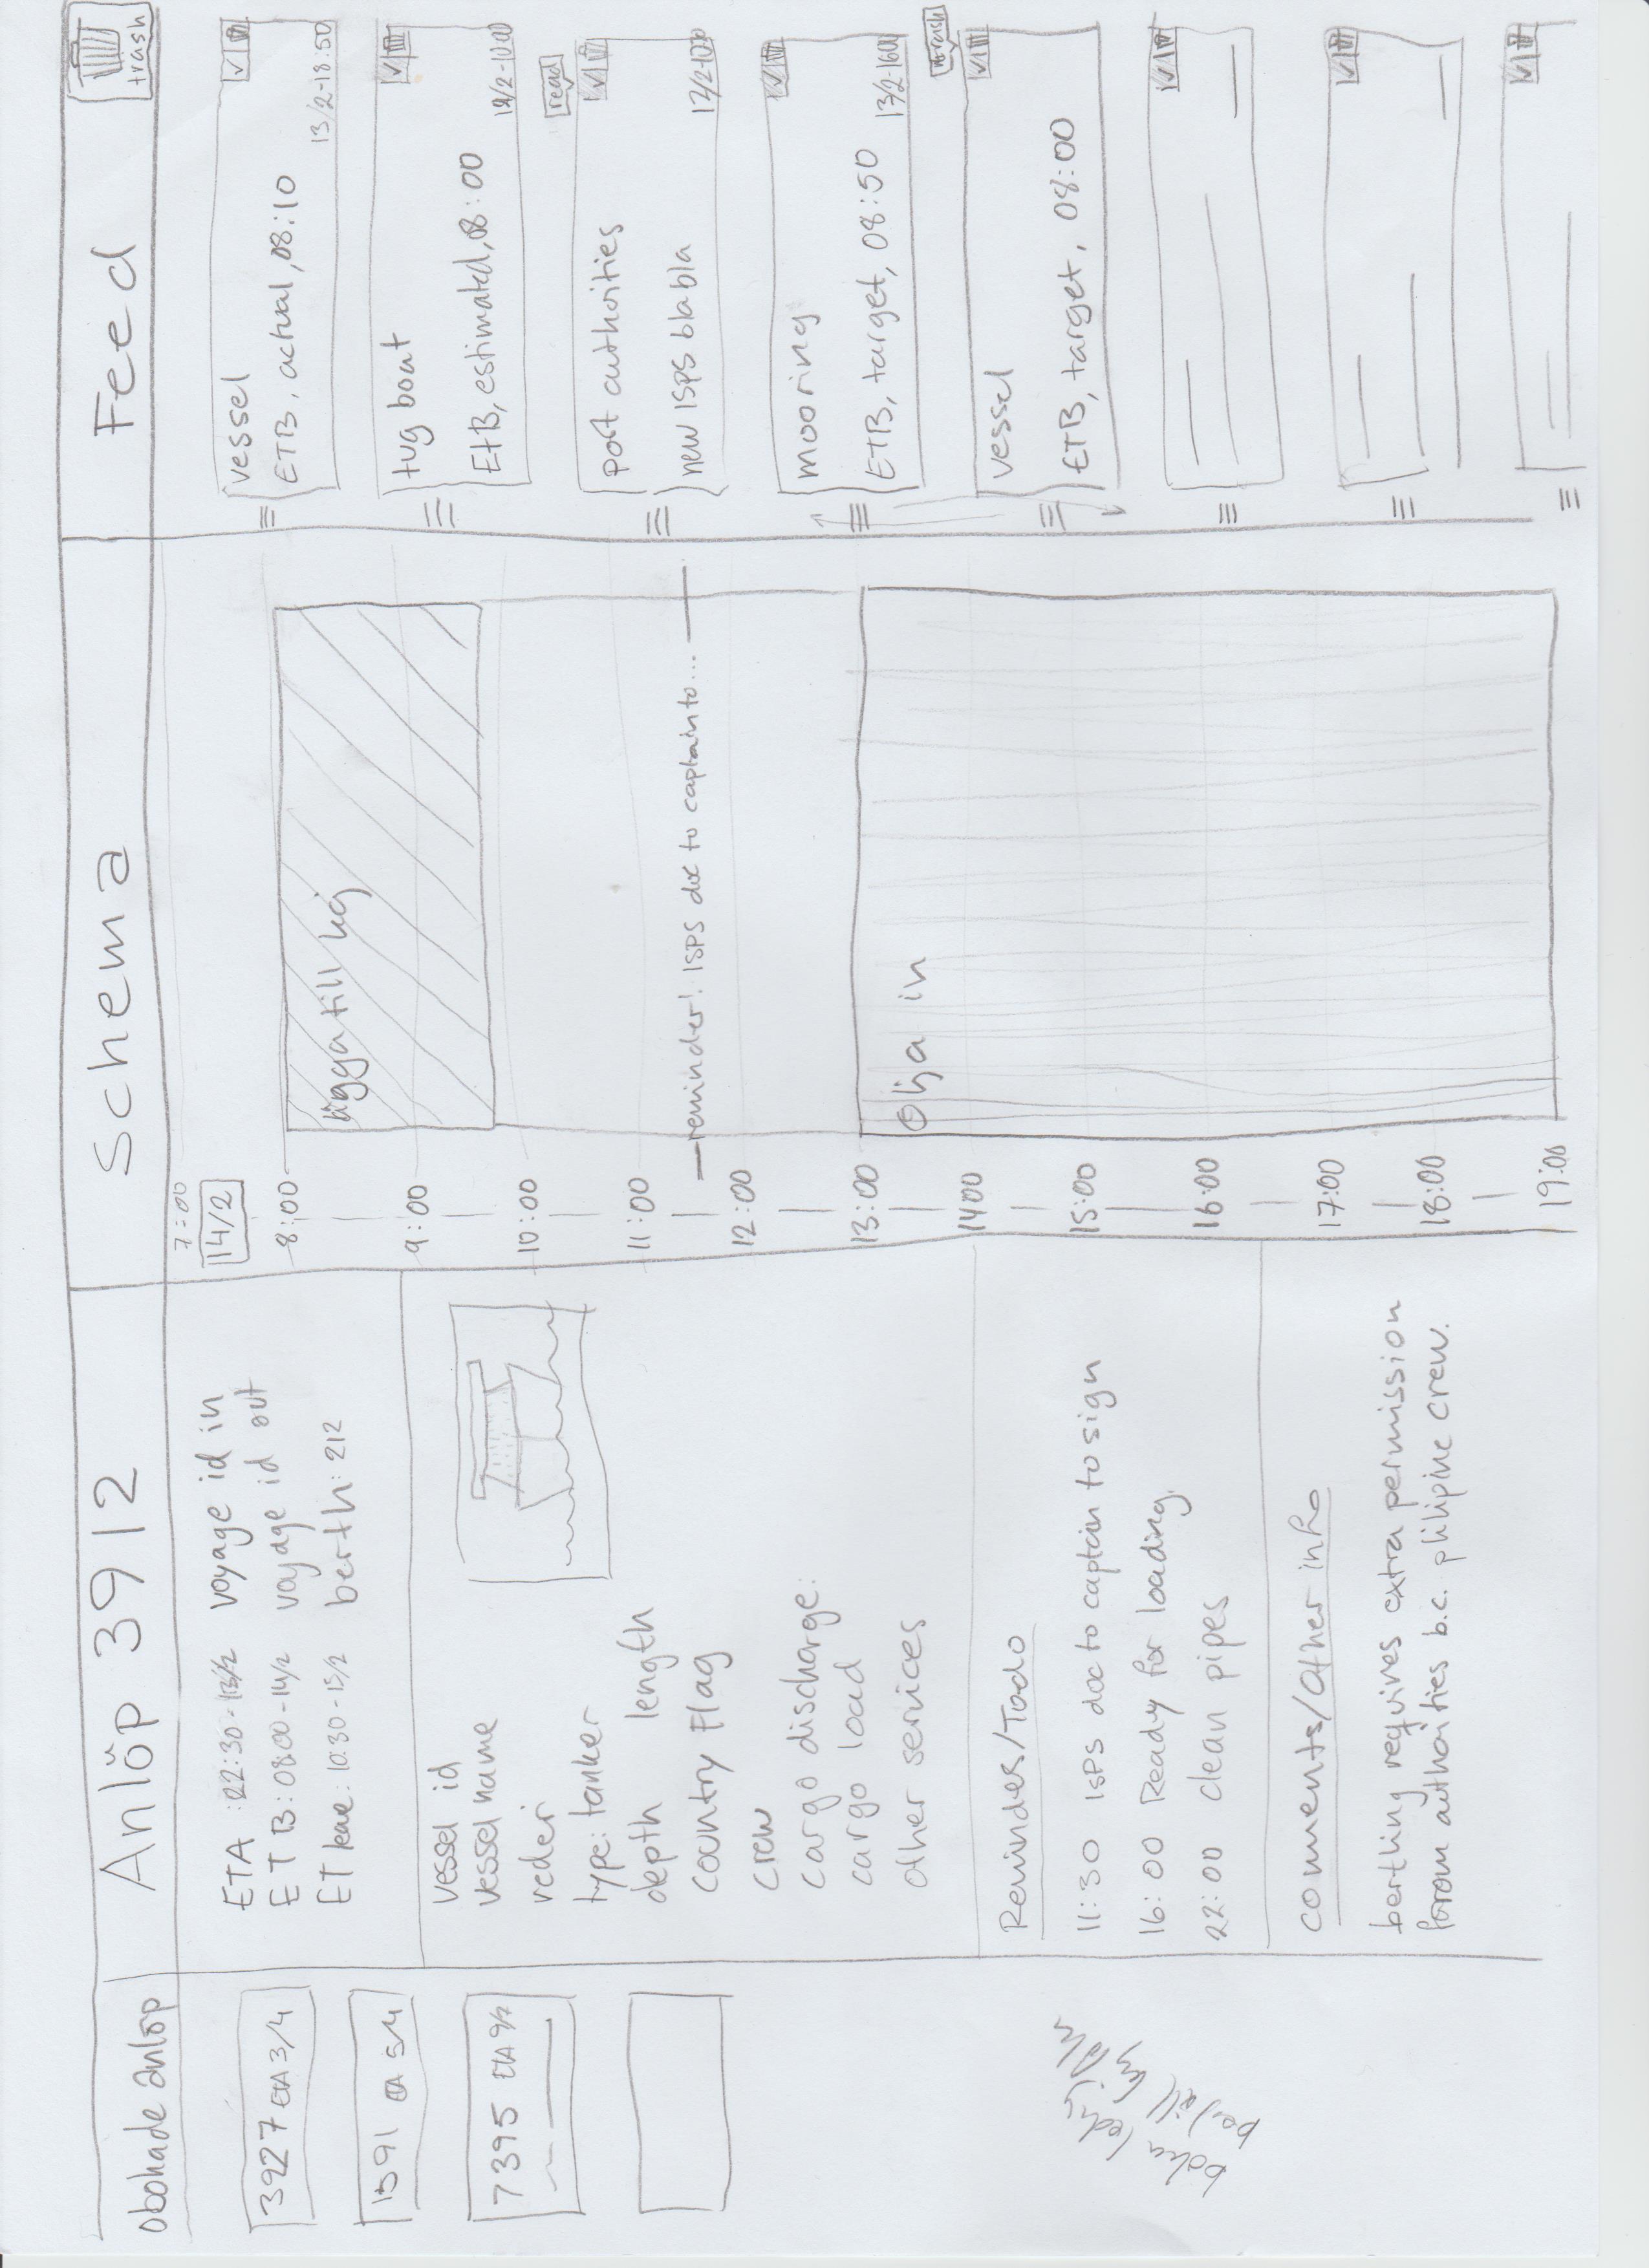 obokade anlöp
3927 ETA 3/4
1591 ETA 5/4
7395 ETA 9/
boka
Anlöp 3912
ETA : 22:30 - 13/2 voyage id in
ETB : 08:00 - 14/2 voyage id out
ET leave : 10:30 - 15/2 berth : 212
vessel id
vessel name
rederi
type: tanker
depth length
Country Flag
crew
cargo discharge:
cargo load
other services
Reminders/Todo
11:30 ISPS doc to captain to sign
16:00 Ready for loading.
22:00 clean pipes
comments/other info
berthing requires extra permission
from authorities b.c. philipine crew.
Schema
7:00
14/2
8:00
lägga till kaj
9:00
10:00
11:00
reminder!: ISPS doc to captain to...
12:00
13:00
Olja in
14:00
15:00
16:00
17:00
18:00
19:00
Feed
trash
vessel
ETB, actual, 08:10
13/2-18:50
tug boat
ETB, estimated, 08:00
read
port authorities
new ISPS blabla
mooring
ETB, target, 08:50
13/2-1600
trash
vessel
ETB, target, 08:00